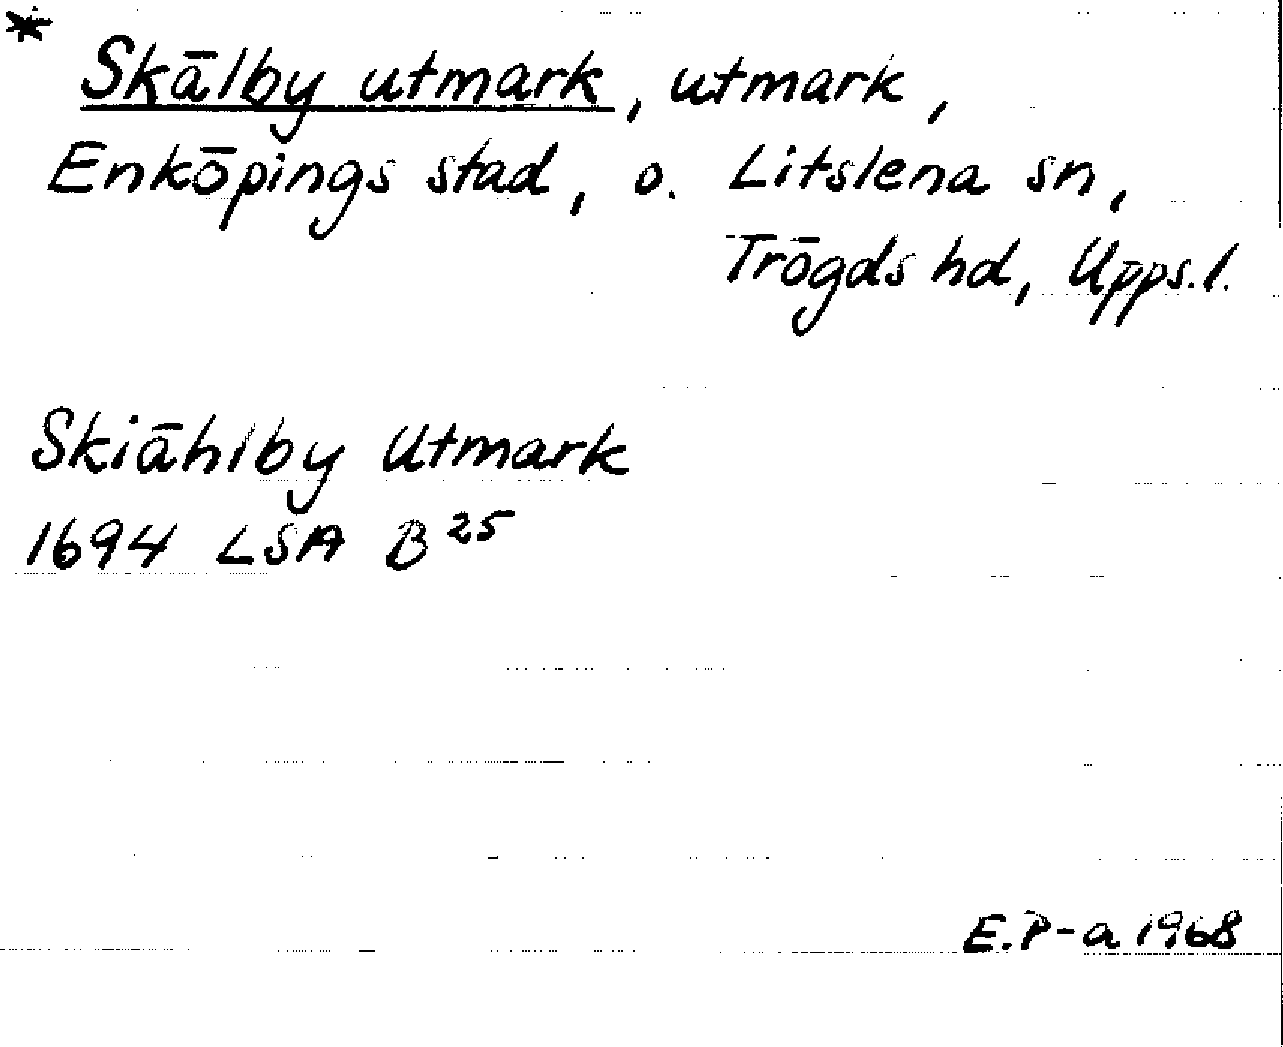 * Skälby utmark, utmark,
Enköpings stad, o. Litslena sn,
Trögds hd, Upps.l.
Skiählby Utmark
1694 LSA B 25
E.P-a 1968